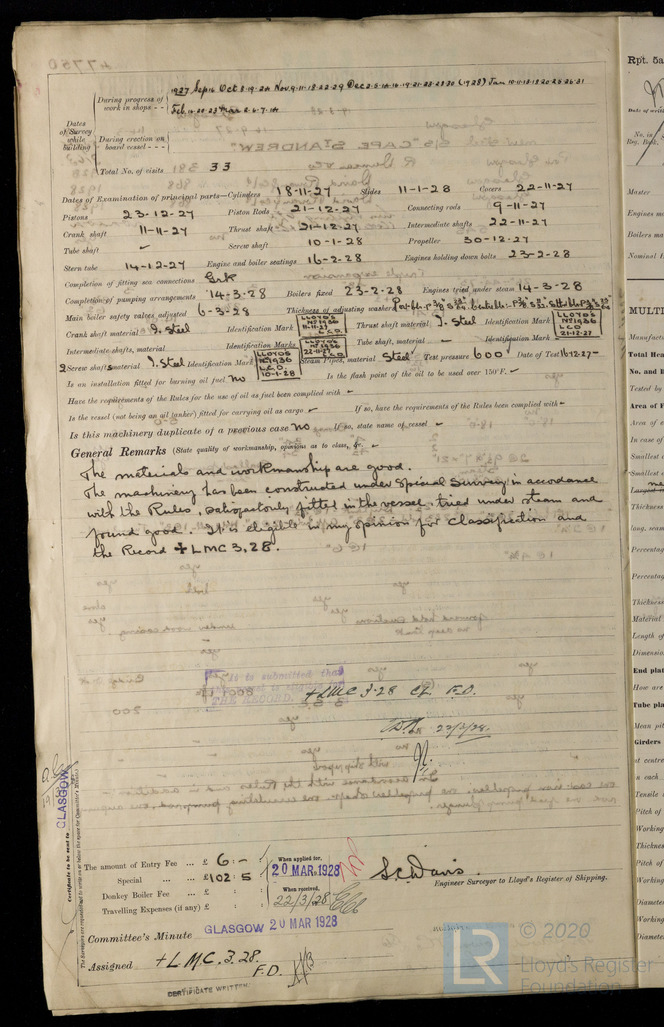 Rpt. 5a
1927 Sep 16 Oct 8.19.24 Nov 9.11.18.22.29 Dec 2.5.14.16.19.21.23.28.30 (1928) Jan 10.11.18.19.20.25.26.31
During progress of work in shops - -
Feb. 14.20.23 Mar 2.6.7.14
Dates of Survey while building
During erection on board vessel - - -
Total No. of visits 33
Dates of Examination of principal parts—Cylinders 18-11-27 Slides 11-1-28 Covers 22-11-27
Pistons 23-12-27 Piston Rods 21-12-27 Connecting rods 9-11-27
Crank shaft 11-11-27 Thrust shaft 21-12-27 Intermediate shafts 22-11-27
Tube shaft ✓ Screw shaft 10-1-28 Propeller 30-12-27
Stern tube 14-12-27 Engine and boiler seatings 16-2-28 Engines holding down bolts 23-2-28
Completion of fitting sea connections Grk
Completion of pumping arrangements 14-3-28 Boilers fixed 23-2-28 Engines tried under steam 14-3-28
Main boiler safety valves adjusted 6-3-28 Thickness of adjusting washers
Crank shaft material I. Steel Identification Mark LLOYDS No 1936 11-11-27 L.C.D. Thrust shaft material I. Steel Identification Mark LLOYDS No 1936 LCD 21-12-27
Intermediate shafts, material Identification Marks LLOYDS No 1936 22-11-27 Tube shaft, material - Identification Mark -
2 Screw shafts material I. Steel Identification Mark LLOYDS No 1936 L.C.D. 10-1-28 Steam Pipes, material Steel Test pressure 600 Date of Test 16-12-27-
Is an installation fitted for burning oil fuel No Is the flash point of the oil to be used over 150°F. ✓
Have the requirements of the Rules for the use of oil as fuel been complied with -
Is the vessel (not being an oil tanker) fitted for carrying oil as cargo ✓ If so, have the requirements of the Rules been complied with -
Is this machinery duplicate of a previous case No If so, state name of vessel -
General Remarks (State quality of workmanship, opinions as to class, &c.
The materials and workmanship are good.
The machinery has been constructed under Special Survey in accordance
with the Rules, satisfactorily fitted in the vessel, tried under steam and
found good. It is eligible in my opinion for classification and
the Record + LMC 3.28.
It is submitted that
THE RECORD.
+LMC 3.28 CL. F.D.
23/3/28.
GLASGOW
Certificate to be sent to
The amount of Entry Fee ... £ 6 : - :
Special ... £ 102 : 5
Donkey Boiler Fee ... £ : :
Travelling Expenses (if any) £ : :
When applied for, 20 MAR. 1928
When received, 22/3/28
S.C. Davis.
Engineer Surveyor to Lloyd's Register of Shipping.
Committee's Minute GLASGOW 20 MAR 1928
Assigned + L.M.C. 3.28.
F.D.
CERTIFICATE WRITTEN
© 2020
LR
Lloyd's Register
Foundation
Master
Engines m
Boilers ma
Nominal H
MULTI
Manufactu
Total Hea
No. and D
Tested by
Area of F
Area of e
In case of
Smallest d
Smallest d
Largest
Thickness
long. seam
Percentag
Percentag
Thickness
Material
Length of
Dimension
End plat
How are
Tube pla
Mean pit
Girders
at centre
n each
Tensile s
Pitch of
Working
Thickness
Pitch of
Working
Diameter
Working
Diameter